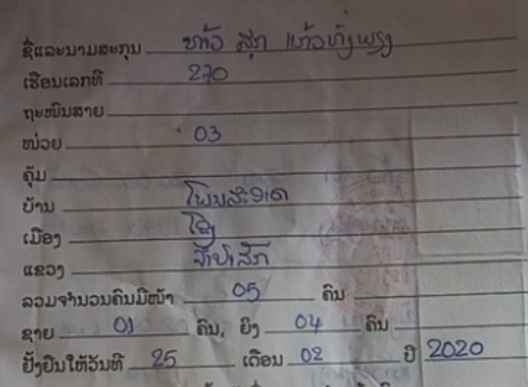 ຊື່ແລະນາມສະກຸນ ທ້າວ ສຸກ ແກ້ວທັງພຽງ
ເຮືອນເລກທີ 270
ຖະໜົນສາຍ
ໜ່ວຍ 03
ຄຸ້ມ
ບ້ານ ໂພນສະອາດ
ເມືອງ ໂຂງ
ແຂວງ ຈຳປາສັກ
ລວມຈຳນວນຄົນມີໜ້າ 05 ຄົນ
ຊາຍ 01 ຄົນ, ຍິງ 04 ຄົນ
ຢັ້ງຢືນໃຫ້ວັນທີ 25 ເດືອນ 02 ປີ 2020